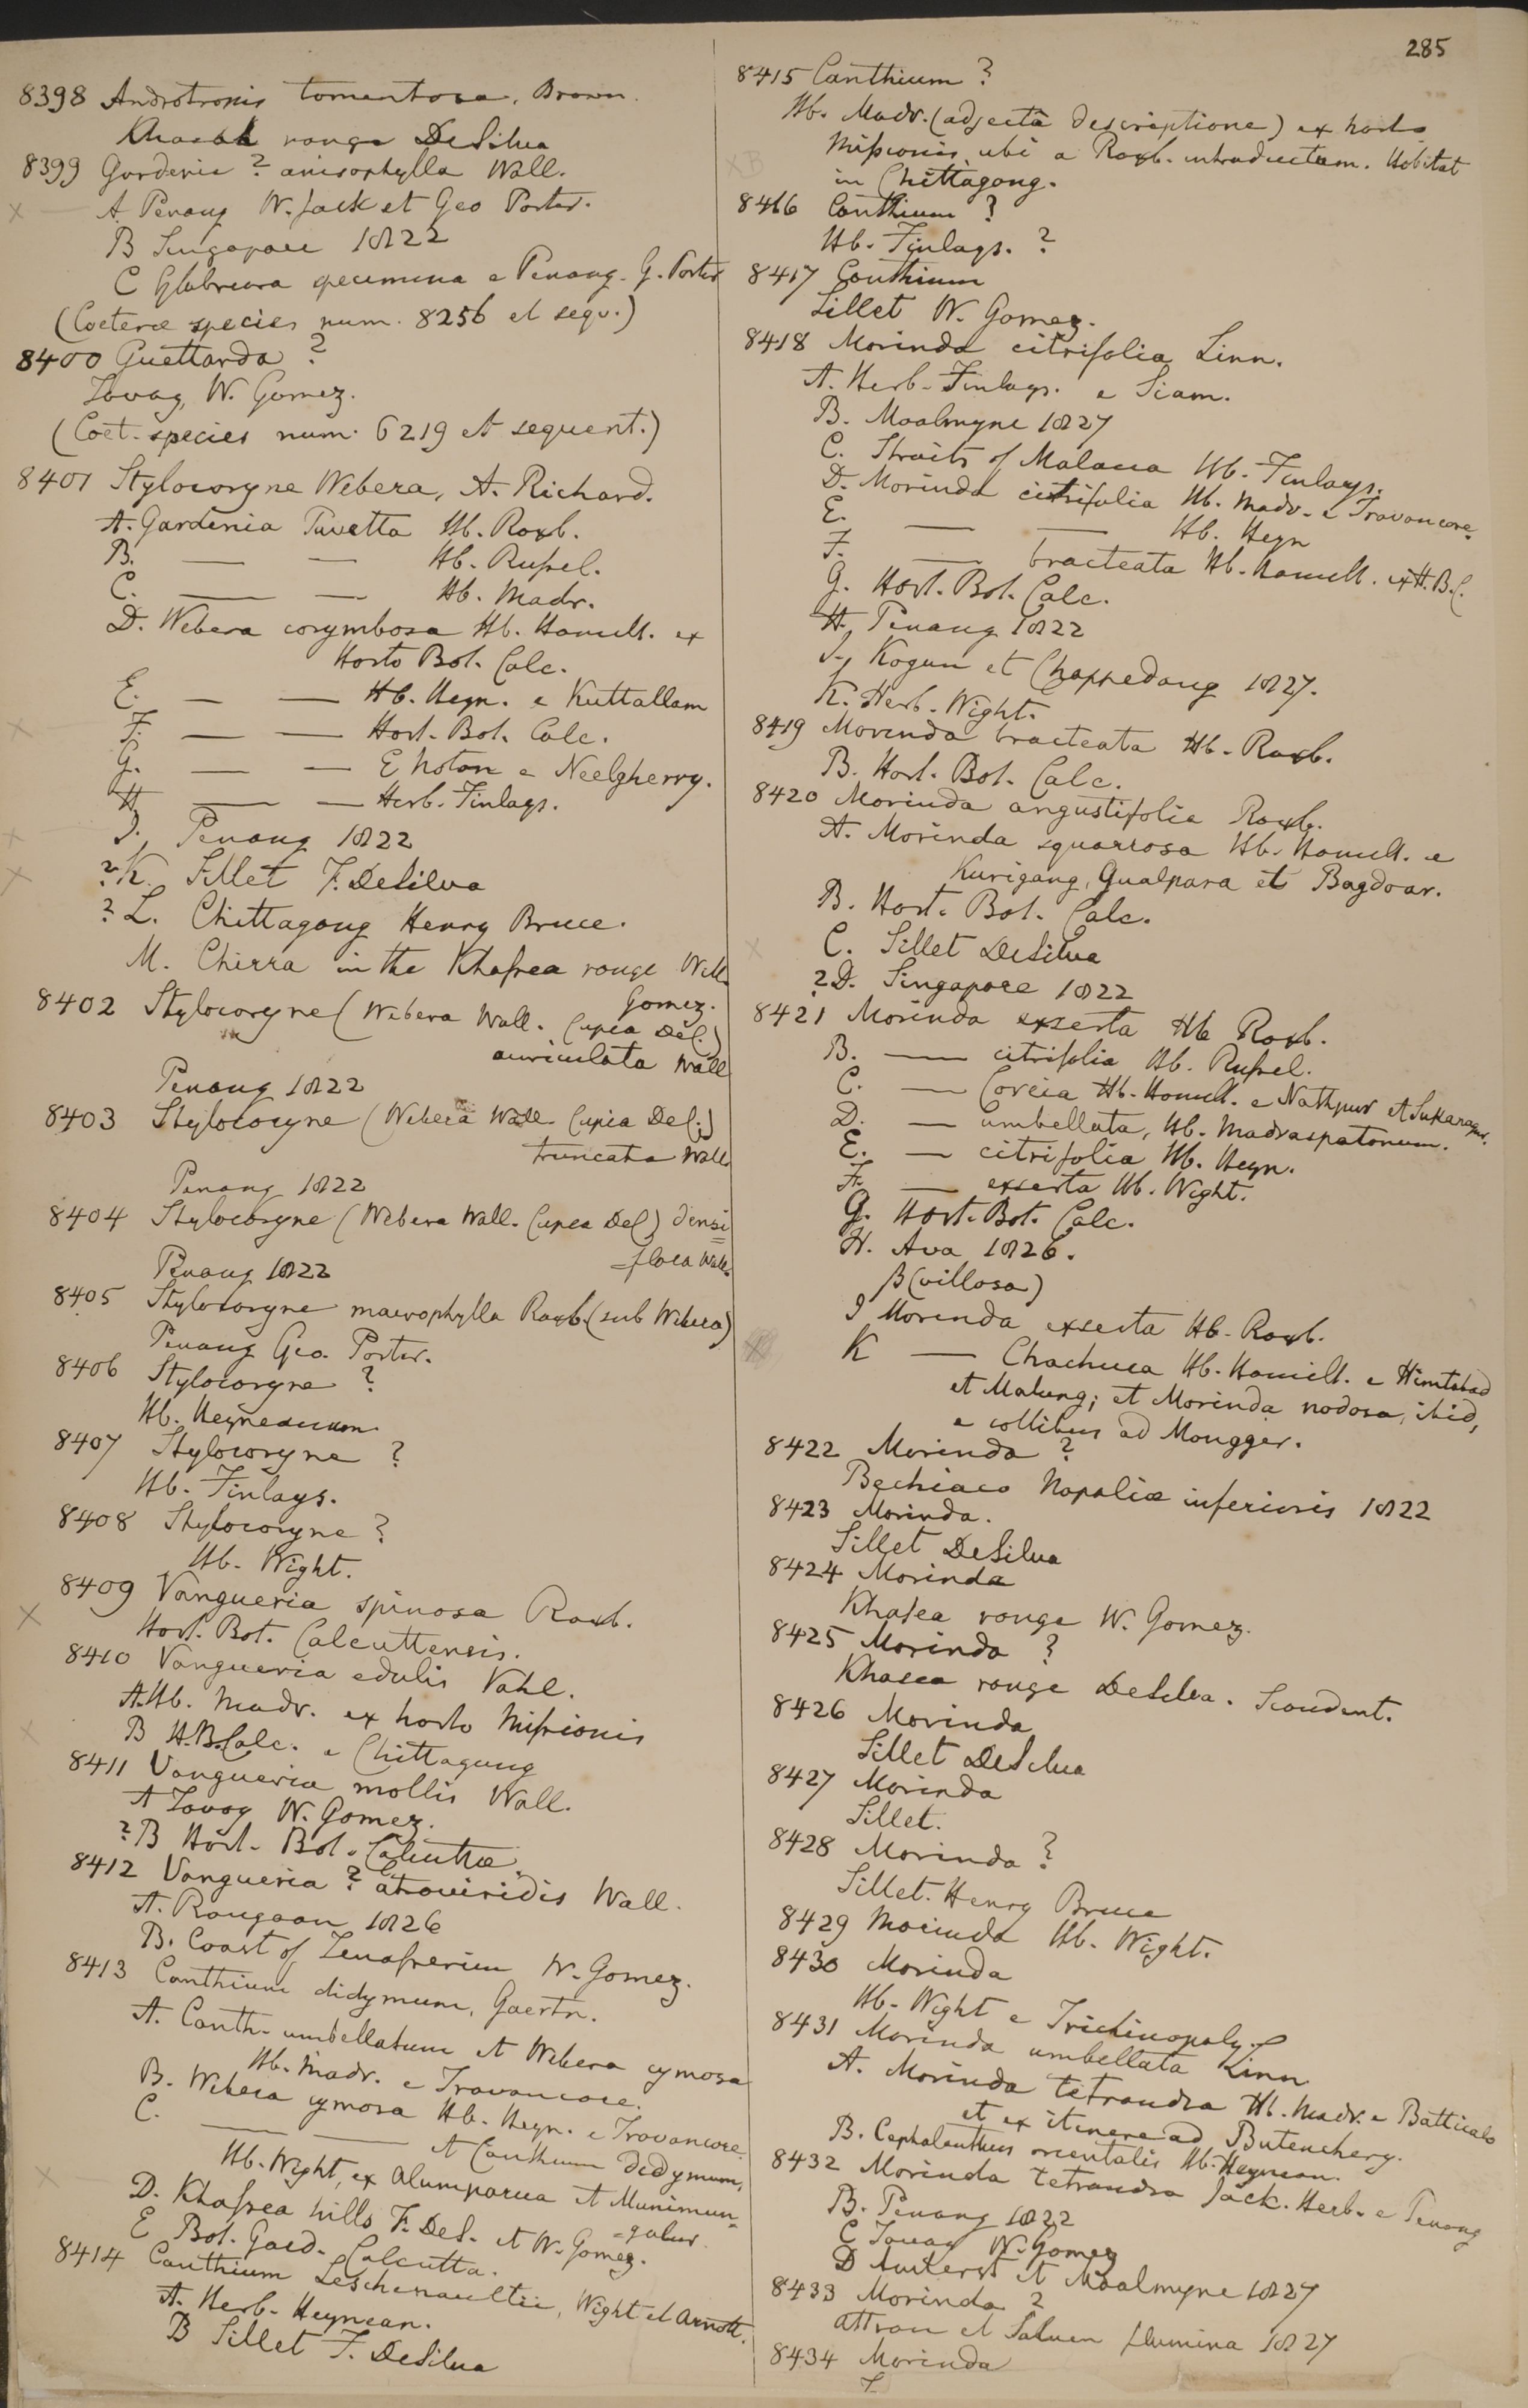 285
8398 Androtropis tomentosa, Brown.
Khasea range DeSilva
8399 Gardenia ? anisophylla Wall.
A. Penang W. Jack et Geo Porter.
B Singapore 1822
C Glabriora specimina e Penang. G. Porter
(Coeterae species num. 8256 et sequ.)
8400 Guettarda ?
Tavoy, W. Gomez.
(Coet. species num. 6219 et sequent.)
8401 Stylocoryne Webera, A. Richard.
A. Gardenia Pavetta Hb. Roxb.
B. — — Hb. Russel.
C. — — Hb. Madr.
D. Webera corymbosa Hb. Hamilt. ex
Horto Bot. Calc.
E. — — Hb. Heyn. e Kuttallam
F. — — Hort. Bot. Calc.
G. — — E Noton e Neelgherry.
H — — Herb. Finlays.
I. Penang 1822
?K. Sillet F. DeSilva
? L. Chittagong Henry Bruce.
M. Chirra in the Khasea range Will.
Gomez.
8402 Stylocoryne (Webera Wall. Cupia Del.)
auriculata Wall
Penang 1822
8403 Stylocoryne (Webera Wall. Cupia Del.)
truncata Wall.
Penang 1822
8404 Stylocoryne (Webera Wall. Cupia Del) densi
=flora Wall.
Penang 1822
8405 Stylocoryne macrophylla Roxb. (sub Webera)
Penang Geo. Porter.
8406 Stylocoryne ?
Hb. Heyneanum
8407 Stylocoryne ?
Hb. Finlays.
8408 Stylocoryne ?
Hb. Wight.
8409 Vangueria spinosa Roxb.
Hort. Bot. Calcuttensis.
8410 Vangueria edulis Vahl.
A. Hb. Madr. ex horto Missionis
B H.B. Calc. e Chittagung
8411 Vangueria mollis Wall.
A Tavoy W. Gomez.
?B Hort. Bot. Calcuttae.
8412 Vangueria ? atroviridis Wall.
A. Rangoon 1826
B. Coast of Tenasserim W. Gomez.
8413 Canthium didymum, Gaertn.
A. Canth. umbellatum et Webera cymosa
Hb. Madr. e Travancore.
B. Webera cymosa Hb. Heyn. e Travancore
C. — — et Canthium didymum,
Hb. Wight, ex Alumparva et Munimun=
=galur.
D. Khasea hills F. DeS. et W. Gomez.
E Bot. Gard. Calcutta.
8414 Canthium Leschenaultii, Wight et Arnott.
A. Herb. Heynean.
B Sillet F. DeSilva
8415 Canthium ?
Hb. Madr. (adjectâ descriptione) ex horto
Missionis, ubi a Roxb. introductum. Habitat
in Chittagong.
8416 Canthium ?
Hb. Finlays. ?
8417 Canthium
Sillet W. Gomez.
8418 Morinda citrifolia Linn.
A. Herb. Finlays. e Siam.
B. Moalmyne 1827
C. Straits of Malacca Hb. Finlays.
D. Morinda citrifolia Hb. Madr. e Travancore.
E. — — Hb. Heyn
F. — bracteata Hb. Hamilt. ex H.B.C.
G. Hort. Bot. Calc.
H. Penang 1822
I. Kogun et Chappedong 1827.
K. Herb. Wight.
8419 Morinda bracteata Hb. Roxb.
B. Hort. Bot. Calc.
8420 Morinda angustifolia Roxb.
A. Morinda squarrosa Hb. Hamilt. e
Kurigang, Gualpara et Bagdoar.
B. Hort. Bot. Calc.
C. Sillet DeSilva
?D. Singapore 1822
8421 Morinda exserta Hb Roxb.
B. — citrifolia Hb. Russel.
C. — Coreia Hb. Hamilt. e Nathpur et Sukanagur.
D. — umbellata, Hb. Madraspatanum.
E. — citrifolia Hb. Heyn.
F. — exserta Hb. Wight.
G. Hort. Bot. Calc.
H. Ava 1826.
β (villosa)
I Morinda exserta Hb. Roxb.
K — Chachuca Hb. Hamilt. e Himtabad
et Malung; et Morinda nodosa, ibid,
e collibus ad Mongger.
8422 Morinda ?
Bechiaco Napaliae inferioris 1822
8423 Morinda.
Sillet DeSilva
8424 Morinda
Khasea range W. Gomez.
8425 Morinda ?
Khasea range DeSilva. Scandent.
8426 Morinda
Sillet DeSilva
8427 Morinda
Sillet.
8428 Morinda ?
Sillet. Henry Bruce
8429 Morinda Hb. Wight.
8430 Morinda
Hb. Wight e Trichinopoly
8431 Morinda umbellata Linn
A. Morinda tetrandra Hb. Madr. e Batticalo
et ex itinere ad Butenchery.
B. Cephalanthus orientalis Hb. Heynean.
8432 Morinda tetrandra Jack. Herb. e Penang
B. Penang 1822
C Tavoy W. Gomez
D Amherst et Moalmyne 1827
8433 Morinda ?
Attran et Saluen flumina 1827
8434 Morinda